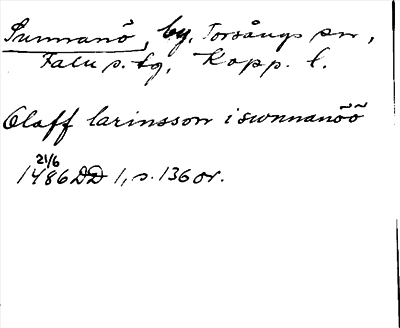 Sunnanö, by, Torsångs sn,
Falu s. tg, Kopp. l.
Olaff larinsson i swnnanöö
21/6
1486 DD 1, s. 136 or.